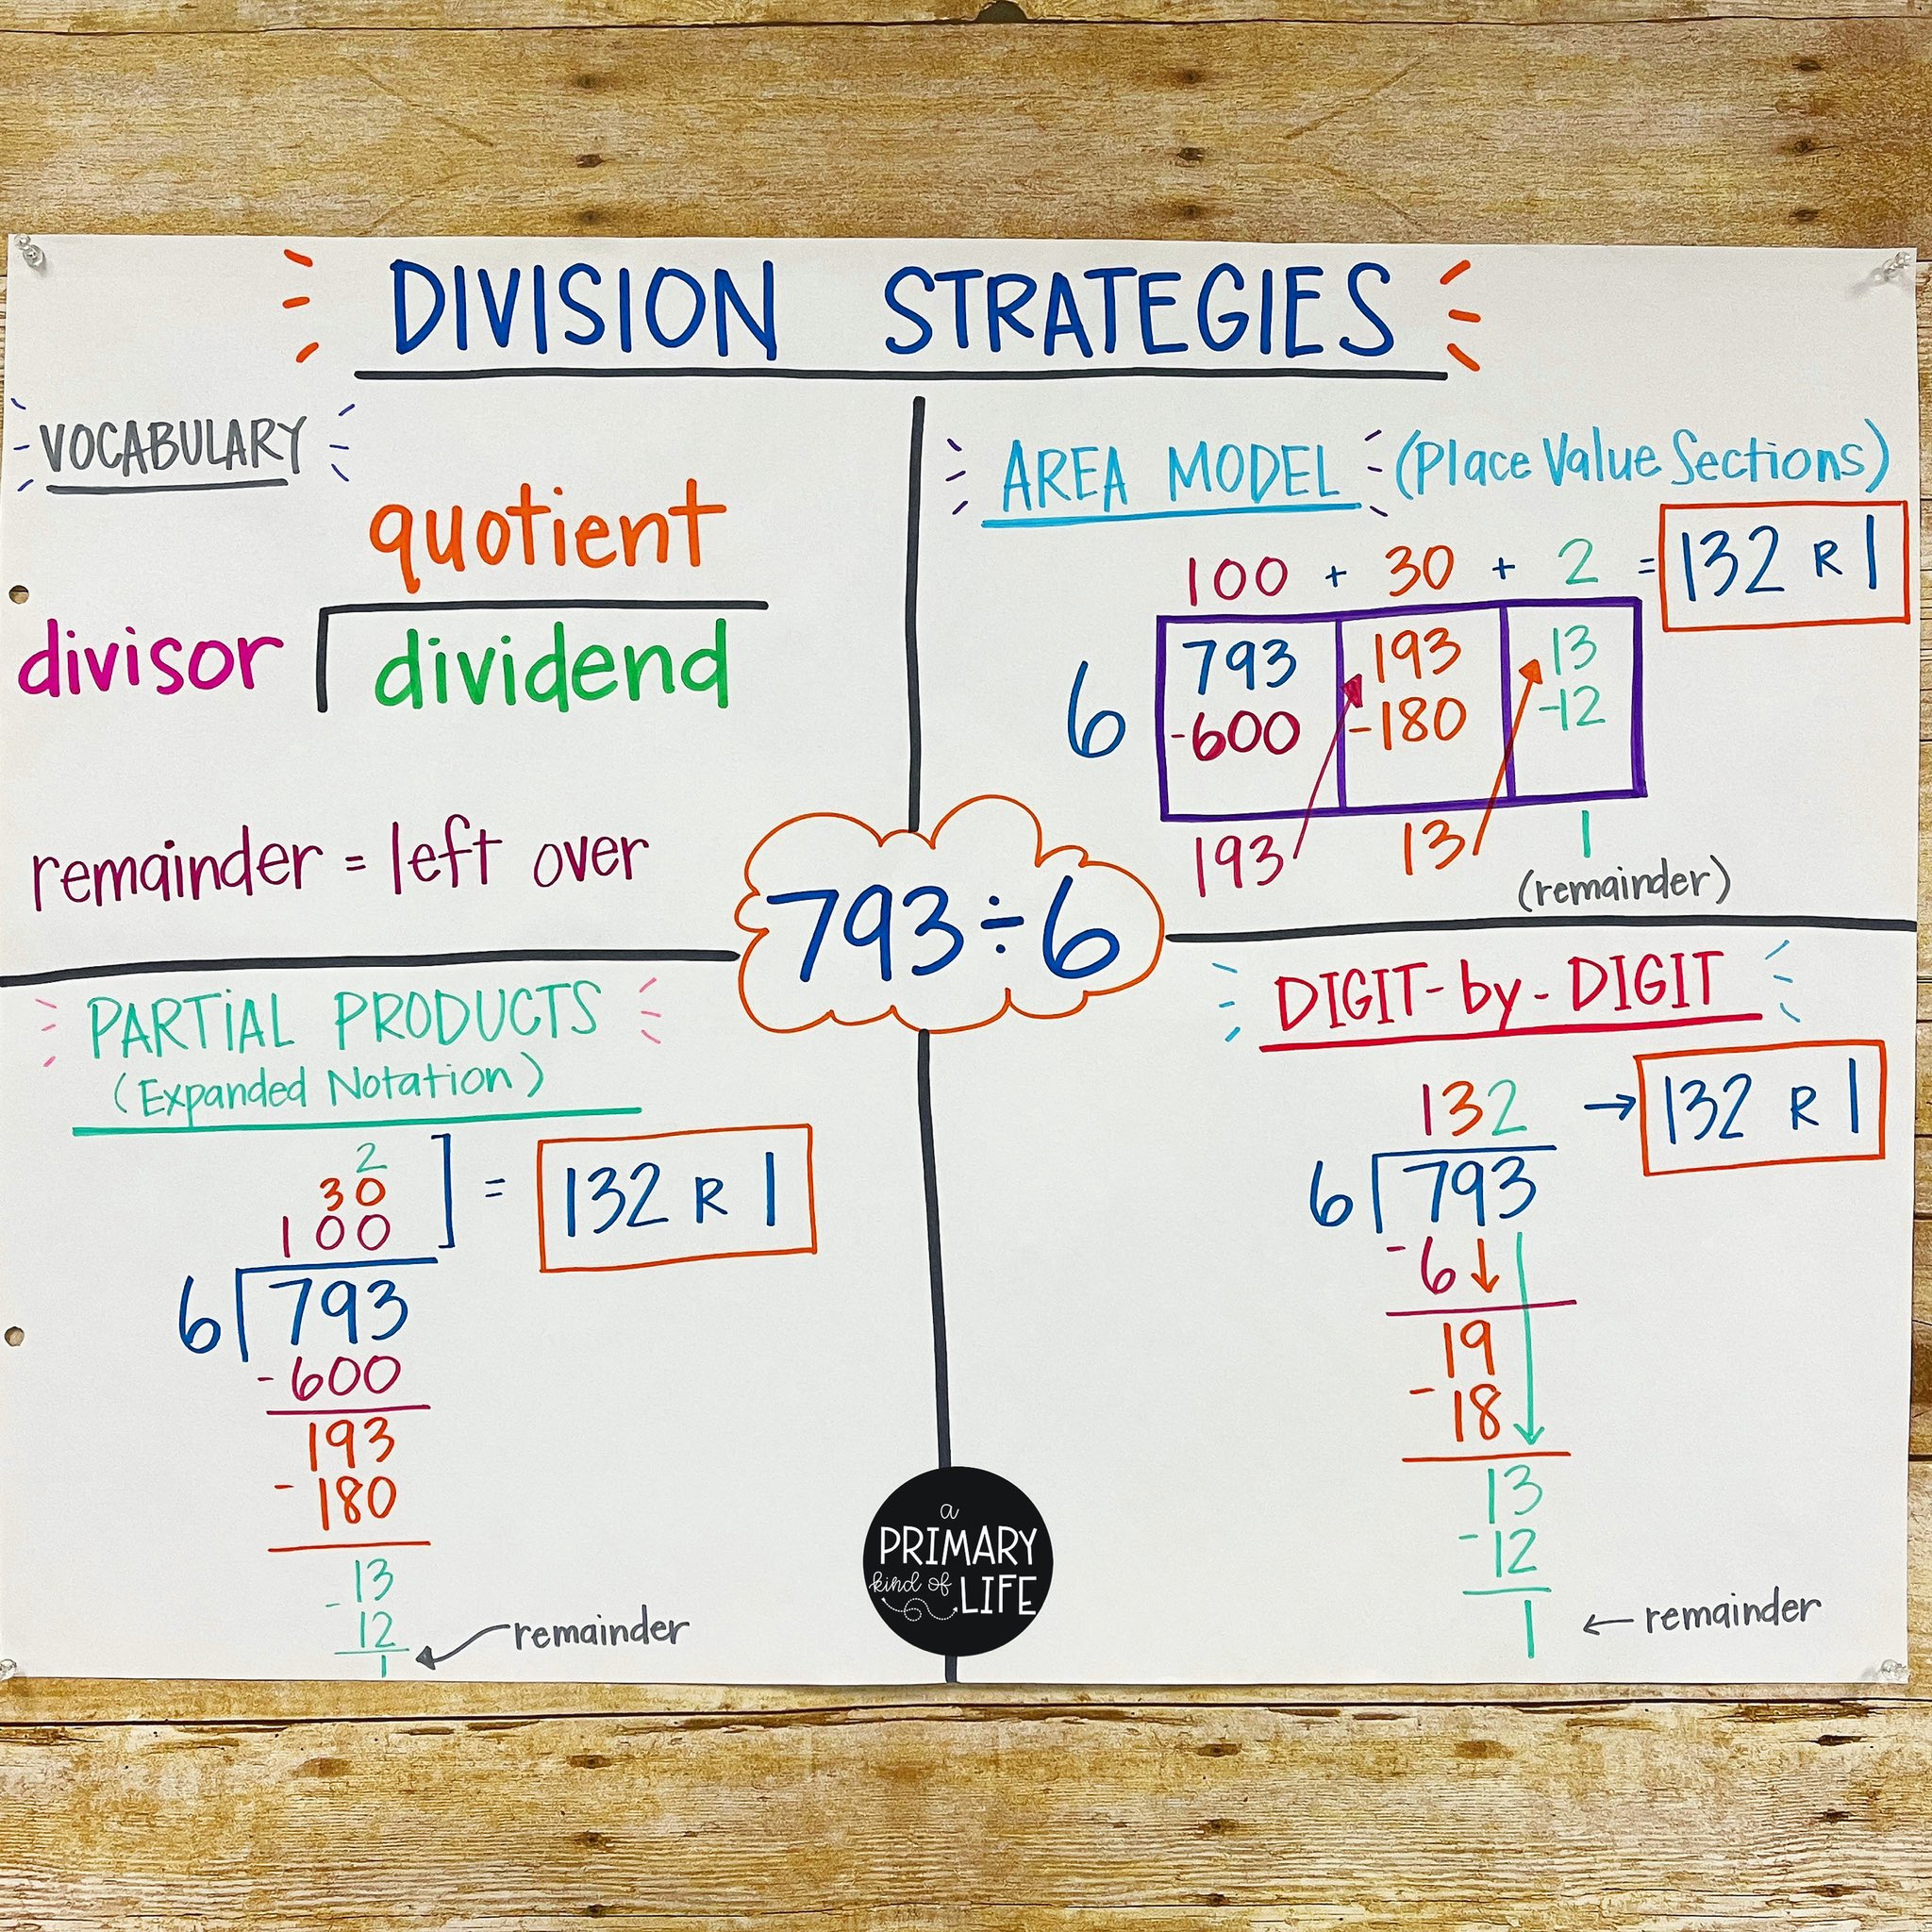 DIVISION STRATEGIES
VOCABULARY
quotient
divisor dividend
remainder = left over
AREA MODEL (Place Value Sections)
100 + 30 + 2 = 132 R 1
793 193 13
6 -600 -180 -12
193 13 1
(remainder)
793÷6
PARTiAL PRODUCTS
(Expanded Notation)
2
30
100
= 132 R 1
6 793
-600
193
- 180
13
- 12
1 remainder
DIGIT-by-DIGIT
132 → 132 R 1
6 793
-6
19
- 18
13
- 12
1 ← remainder
a
PRIMARY
kind of LIFE